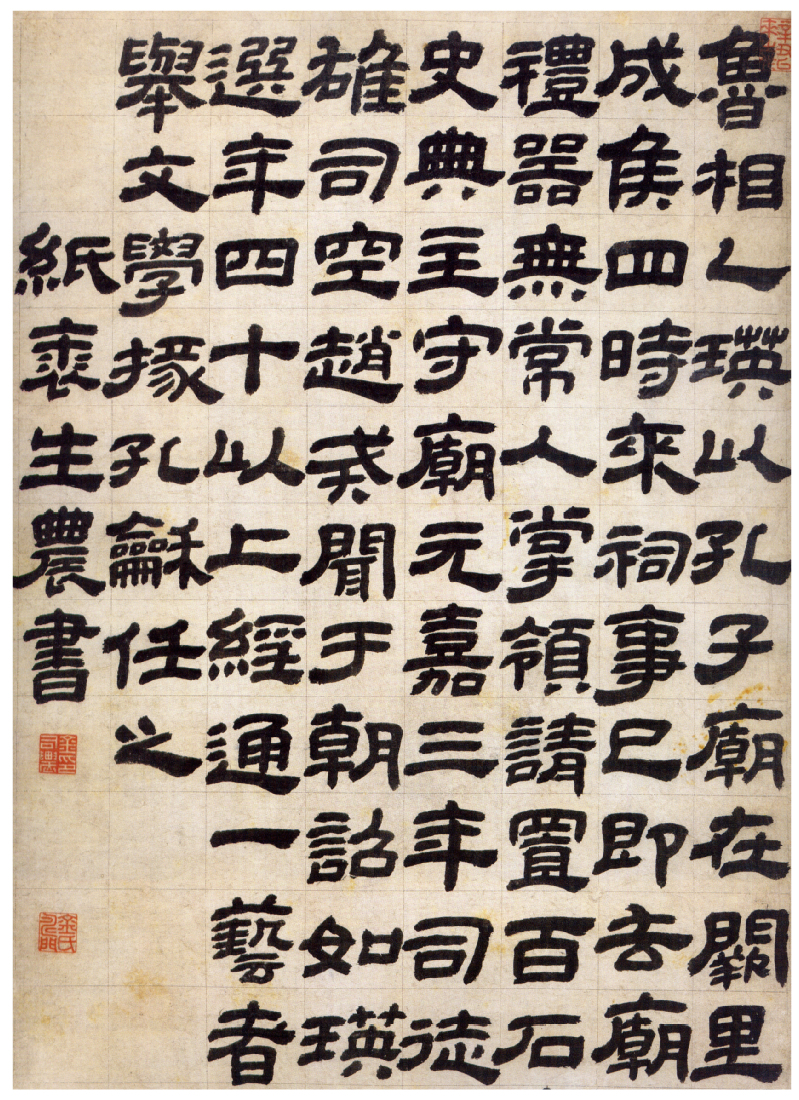 魯相乙瑛以孔子廟在闕里
成侯四時來祠事已即去廟
禮器無常人掌領請置百石
史典主守廟元嘉三年司徒
雄司空趙戒聞于朝詔如瑛
選年四十以上經通一藝者
舉文學掾孔龢任之
紙裘生農書